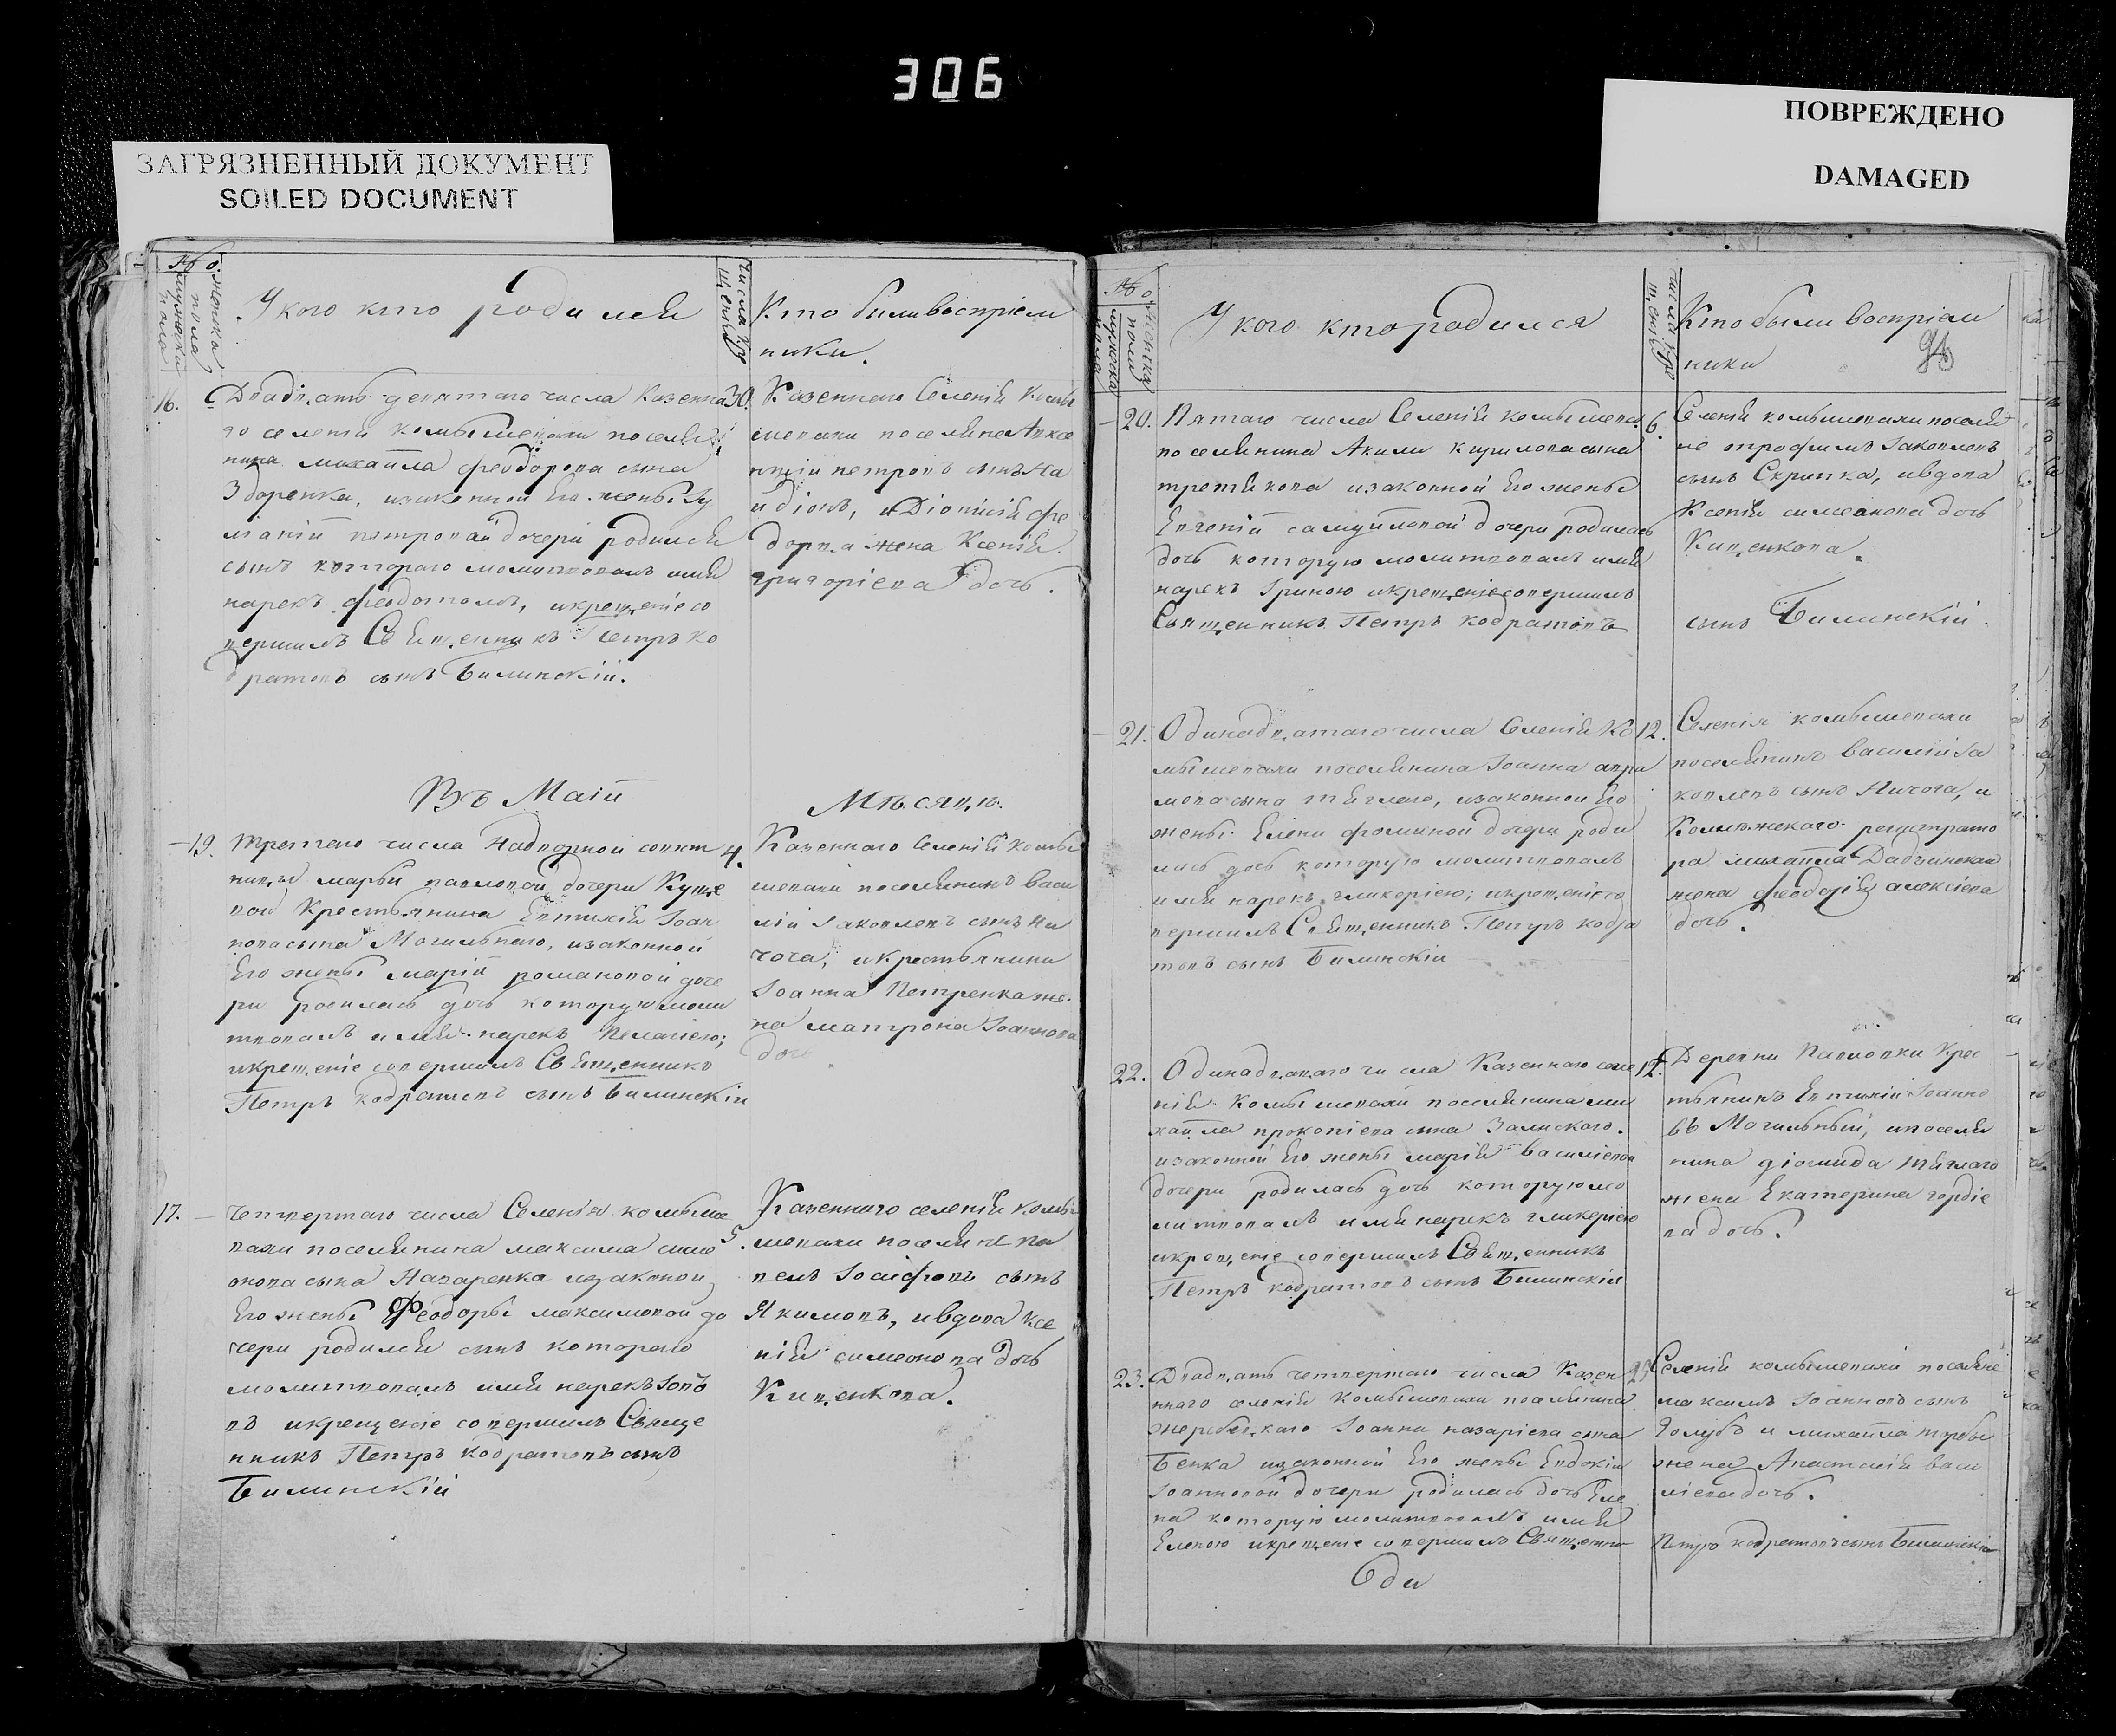 306
ЗАГРЯЗНЕННЫЙ ДОКУМЕНТ
SOILED DOCUMENT
ПОВРЕЖДЕНО
DAMAGED
№
У кого кто родился
Кто были воспріем
ники.
16. Двадцать девятаго числа Казенна
го селенія комышевахи поселя
нина михаила феодорова сына
Здоренка, изаконной Его жены
петровой дочери родился
сынъ котораго молитвовалъ имя
нарекъ феодотомъ, икрещеніе со
вершилъ Священникъ Петръ ко
дратовъ сынъ Билинскій.
30. Казеннаго Селенія Комы
шевахи поселянинъ
петровъ сынъ На
и Діонисія фе
жена Ксенія
григоріева дочь.
Въ Маіи
Мѣсяцѣ.
19. третего числа Надворной совет
ницы марьи павловой дочери
вой Крестьянина Евтихія Іоан
нова сына Могильнаго, изаконной
Его жены маріи романовой доче
ри родилась дочь которую моли
твовалъ имя нарекъ Пелагіею;
икрещеніе совершилъ Священникъ
Петръ кодратовъ сынъ Билинскій
4. Казеннаго Селенія комы
шевахи поселянинъ васи
лій Іаковлевъ сынъ Ни
чога, икрестьянина
Іоанна Петренка же
на матрона Іоаннова
дочь
17. Четвертаго числа Селенія комыше
вахи поселянина максима симе
онова сына Назаренка изаконой
Его жены Феодоры максимовой до
чери родился сынъ котораго
молитвовалъ имя нарекъ
въ икрещеніе совершилъ Свяще
нникъ Петръ кодратовъ сынъ
Билинскій
5. Казеннаго селенія комы
шевахи поселяне па
велъ Іосифовъ сынъ
Якимовъ, ивдова ксе
нія симеонова дочь
Куценкова.
№
У кого кто родился
Кто были воспріем
ники
20. Пятаго числа Селенія комышева
поселянина Акима кирилова сына
третякова изаконной Его жены
Евгеніи самуиловой дочери родилась
дочь которую молитвовалъ имя
нарекъ Іриною икрещеніе совершилъ
Священникъ Петръ кодратовъ
6. Селенія комышевахи поселя
не трофимъ Іаковлевъ
сынъ Скрипка, ивдова
Ксенія симеонова дочь
Куценкова.
сынъ Билинскій.
21. Одинадцатаго числа Селенія Ко
мышевахи поселянина Іоанна авра
мова сына тяглаго, изаконной Его
жены Елены фоминой дочери роди
лась дочь которую молитвовалъ
имя нарекъ гликеріею; икрещеніе со
вершилъ Священникъ Петръ кодра
товъ сынъ Билинскій
12. Селенія комышевахи
поселянинъ василій Іа
ковлевъ сынъ Ничога, и
Колежскаго регистрато
ра михаила Дадчинскаго
жена феодосія алексіева
дочь.
22. Одинадцатаго числа Казеннаго селе
нія Комышевахи поселянина ми
хаила прокопіева сына Залиского.
изаконной Его жены маріи василіевой
дочери родилась дочь которую мо
литвовалъ имя нарекъ гликеріею
икрещеніе совершилъ Священникъ
Петръ кодратовъ сынъ Билинскій
12. Деревни Павловки Крес
тьянинъ Евтихій Іоанно
въ Могильный, ипоселя
нина діомида тяглаго
жена Екатерина гордіе
ва дочь.
23. Двадцать четвертаго числа Казен
наго селенія Комышевахи поселянина
Іоанна назаріева сына
Бенка изаконной Его жены Евдокіи
Іоанновой дочери родилась дочь Еле
на которую молитвовалъ имя
Еленою икрещеніе совершилъ Священни
25. Селенія комышевахи поселяне
максимъ Іоанновъ сынъ
Голубъ и михаила торбы
жена Анастасія васи
ліева дочь.
Петръ кодратовъ сынъ Билинскій